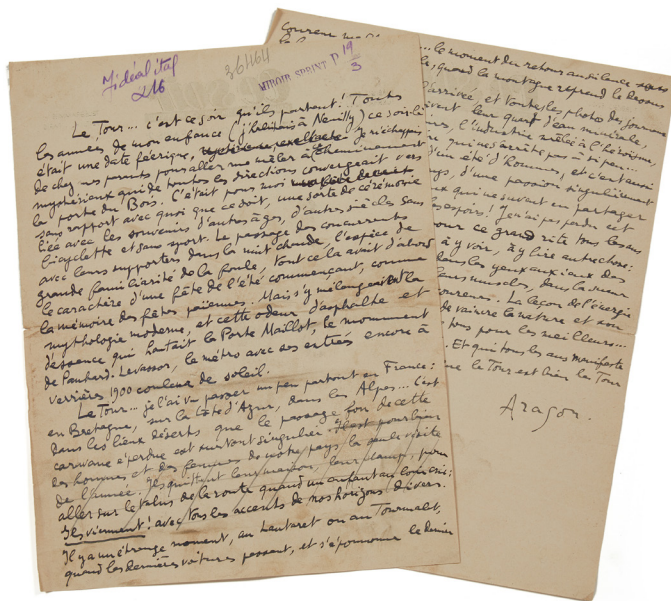 idéal ital
216
36464
MIROIR SPRINT P 19/3
Le Tour... c'est ce soir qu'ils partent! Toutes
les années de mon enfance (j'habitais à Neuilly) ce soir-là
était une date féerique, Je m'échappais
de chez mes parents pour aller me mêler à l'acheminement
mystérieux qui de toutes les directions convergeait vers
la porte du Bois. C'était pour moi
sans rapport avec quoi que ce soit, une sorte de cérémonie
liée avec les souvenirs d'autres âges, d'autres siècles sans
bicyclette et sans sport. Le passage des concurrents
avec leurs supporters dans la nuit chaude, l'espèce de
grande familiarité de la foule, tout cela avait d'abord
le caractère d'une fête de l'été commençant, comme
la mémoire des fêtes païennes. Mais s'y mélangeaient la
mythologie moderne, et cette odeur d'asphalte et
d'essence qui hantait la Porte Maillot, le monument
de Panhard-Levassor, le métro avec ses entrées encore à
verrières 1900 couleur de soleil.
Le Tour... je l'ai vu passer un peu partout en France:
en Bretagne, sur la Côte d'Azur, dans les Alpes... C'est
dans les lieux déserts que le passage fou de cette
caravane éperdue est surtout singulier.
des hommes et des femmes de notre pays la seule visite
de l'année. Ils quittent leur maison, leur champ, pour
aller sur le talus de la route quand un enfant au loin crie:
Ils viennent! avec tous les accents de nos horizons divers.
Il y a un étrange moment, au Lautaret ou au Tourmalet,
quand les dernières voitures passent, et s'époumone le dernier
coureur
... le moment du retour au silence
, quand la montagne reprend le dessus
arrivée, et toutes les photos des journaux
leur quart d'eau minérale,
l'industrie mêlée à l'héroïsme,
qui ne s'arrête pas à si peu...
d'un été d'hommes, et c'est aussi
d'une passion singulièrement
qui savent en partager
espoirs! Je n'ai pas perdu cet
pour ce grand rite tous les ans
à y voir, à y lire autre chose:
dans les yeux anxieux des
muscles, dans la sueur
coureurs. La leçon de l'énergie
de vaincre la nature et son
tous pour les meilleurs...
. Et qui tous les ans manifeste
le Tour est bien le Tour
Aragon.